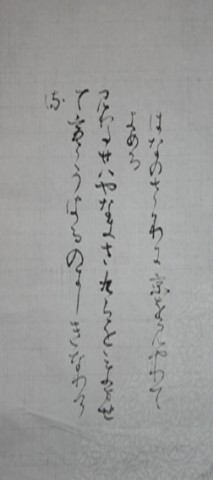 はなのさかりに京をみやりて
よめる
みわたせはやなきさくらをこきませ
て宮こそはるのにしきなりけ
る